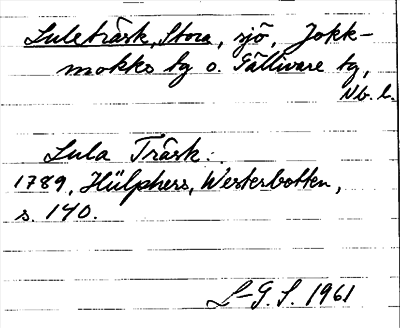 Luleträsk, Stora, sjö, Jokk-
mokks tg o. Gällivare tg,
Nb. l.
Lula Träsk:
1789, Hülphers, Westerbotten,
s. 140.
L-G. S. 1961